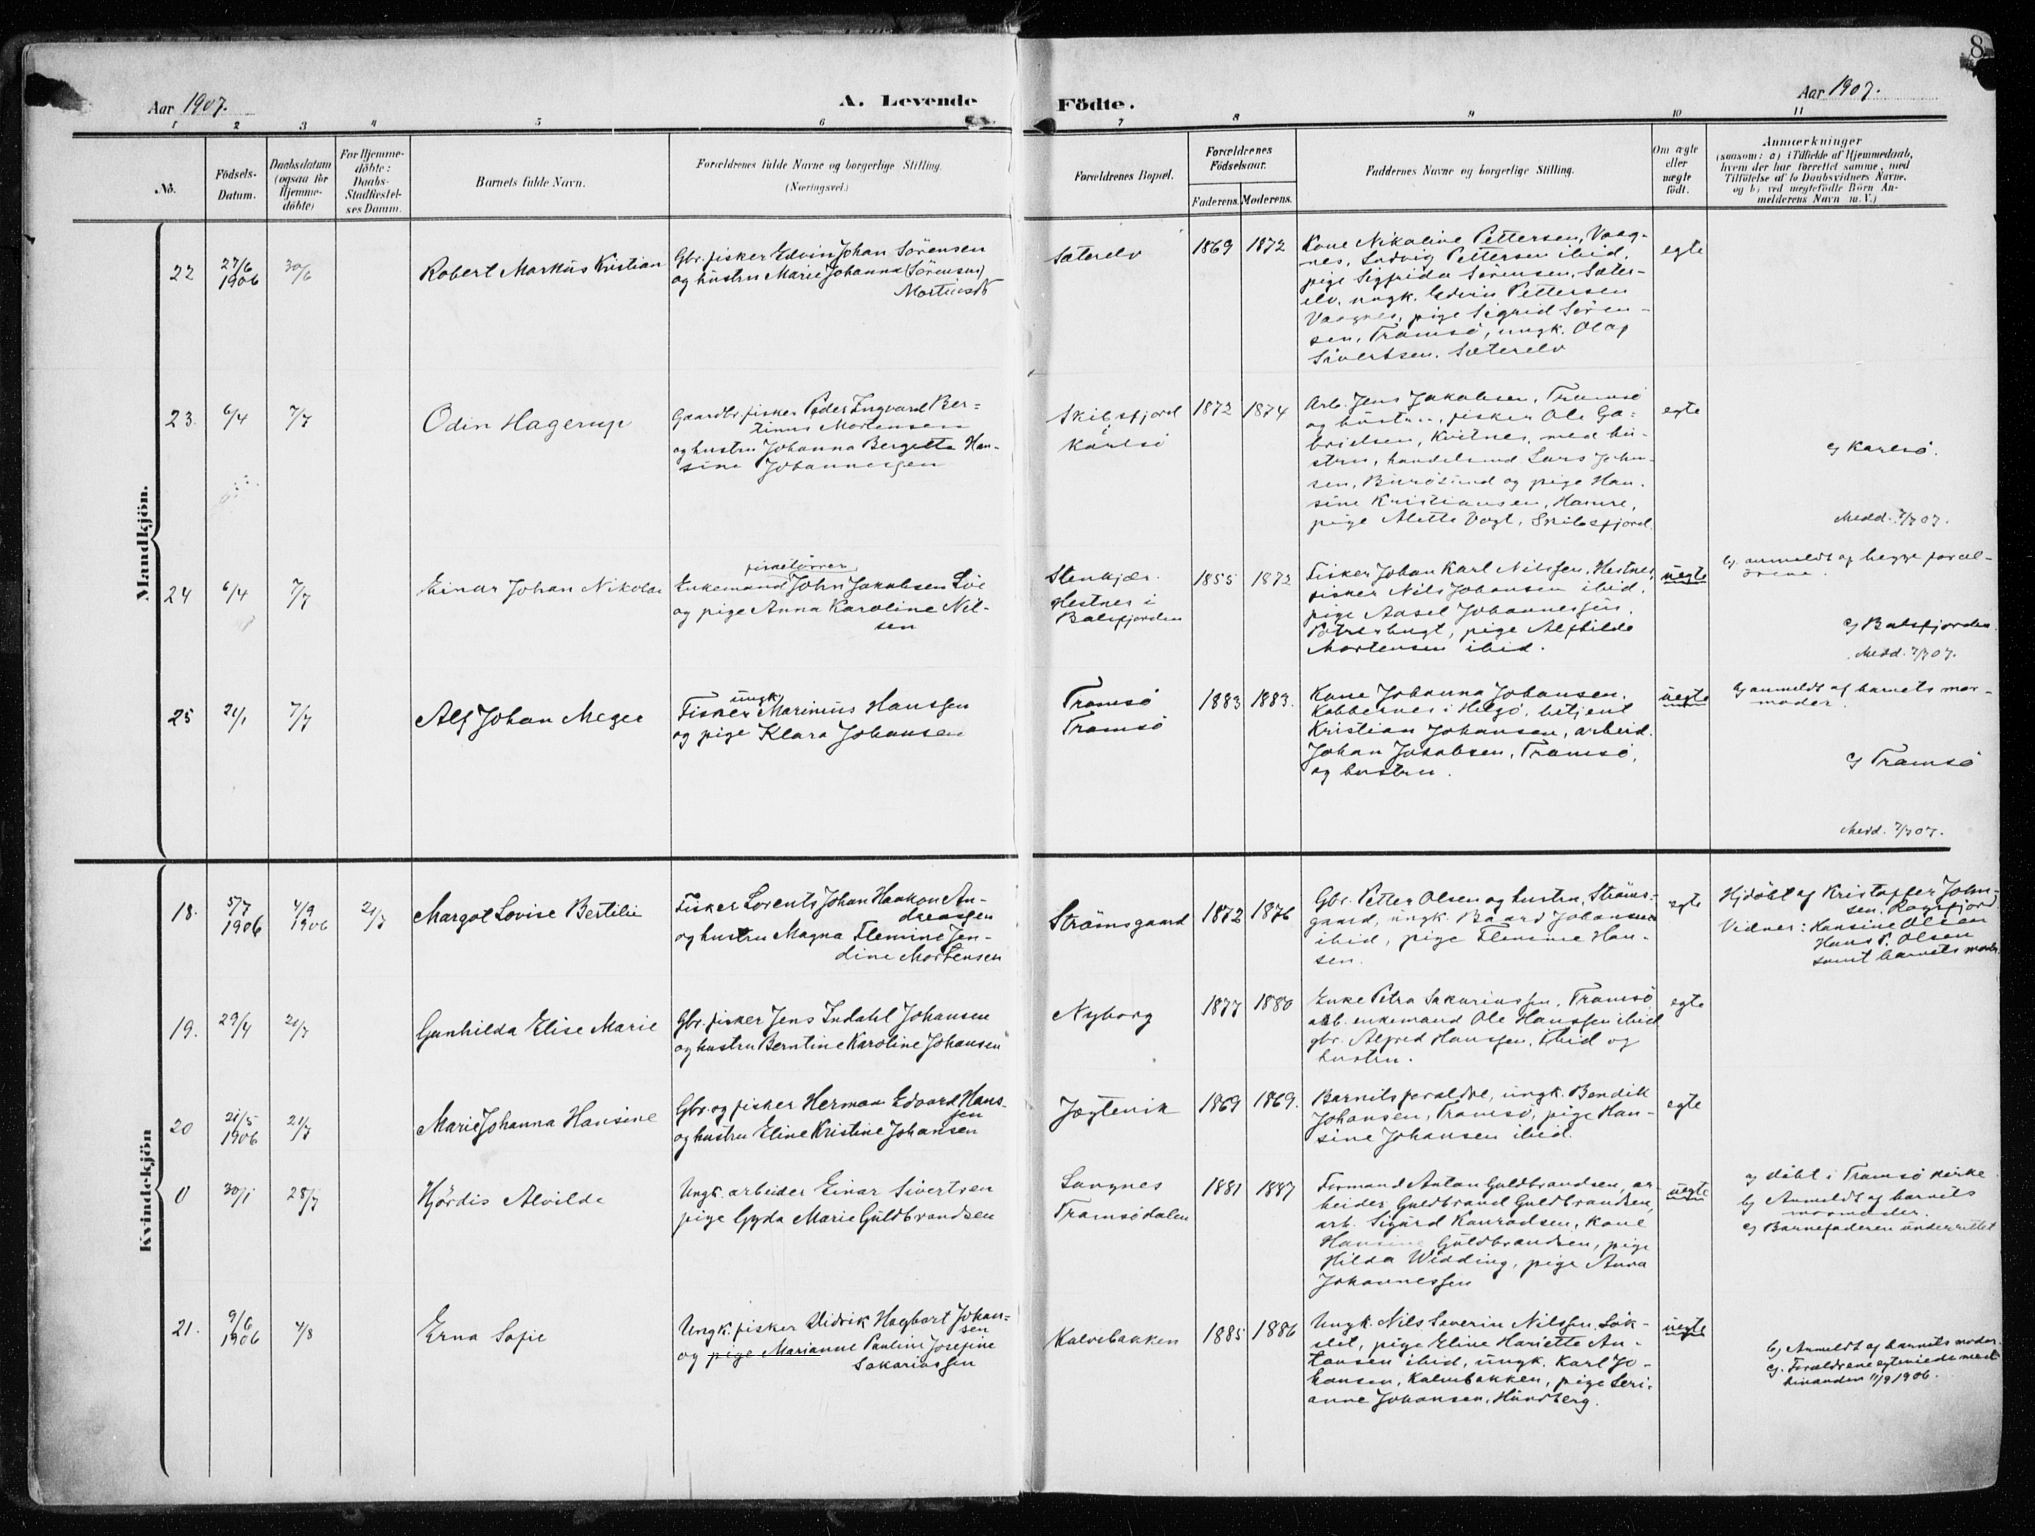 8
Aar 1907.
A. Levende
Födte.
Aar 1907.
1 2 3 4 5 6 7 8 9 10 11
No.
Födsels-
Datum.
Daabsdatum
(ogsaa för
Hjemme-
döbte)
For Hjemme-
döbte:
Daabs-
Stadfæstel-
ses Datum.
Barnets fulde Navn.
Forældrenes fulde Navne og borgerlige Stilling.
(Næringsvei.)
Forældrenes Bopæl.
Forældrenes
Födselsaar.
Faderens. Moderens.
Faddernes Navne og borgerlige Stilling.
Om ægte
eller
uægte
födt.
Anmærkninger
(saasom: a) i Tilfælde af Hjemmedaab,
hvem der har forrettet samme, med
Tilföielse af to Daabsvidners Navne,
og b) ved uægtefödte Börn An-
melderens Navn m. V.)
Mandkjön.
22
27/6
1906
30/6
Robert Markus Kristian
Gbr. fisker Edvin Johan Sørensen
og hustru Marie Johanna (Sørensen)
Sæterelv
1869
1872
Kone Nikoline Pettersen, Vaag-
nes, Ludvig Pettersen ibid,
pige Sigfrida Sørensen, Sæter-
elv, ungk. Edvin Pettersen
Vaagnes, pige Sigrid Søren-
sen, Tromsø, ungk. Olaf
Sivertsen, Sæterelv
egte
23.
6/4
7/7
Odin Hagerup
Gaardbr. fisker Peder Ingvard Ber-
tinus Mortensen
og hustru Johanna Bergitta Han-
sine Johannessen
Skibsfjord
i
Karlsø
1872
1874
Arb. Jens Jakobsen, Tromsø
og hustru, fisker Ole Ga-
brielsen, Kvitnes, med hu-
stru, handelsmd Lars John-
sen, Burøsund og pige Han-
sine Kristiansen, Hamre,
pige Alette Vogt, Skibsfjord
egte
c) Karlsø.
Medd. 7/7 07.
24
6/4
7/7
Einar Johan Nikolai
fisketørrer
Enkemand John Jakobsen Löe
og pige Anna Karoline Nil-
sen
Stenkjær
Hestnes i
Balsfjorden
1855
1872
Fisker Johan Karl Nilssen, Hestnes,
fisker Nils Johansen ibid,
pige Aasel Johannessen,
pige Alfhilde
Mortensen ibid.
uegte
b) anmeldt af begge foræl-
drene.
c) Balsfjorden.
Medd. 7/7 07.
25
21/1
7/7
Alf Johan Meger
ungk.
Fisker Marinius Hanssen
og pige Klara Johansen
Tromsø
Tromsø
1883
1883.
Kone Johanna Johansen,
Kobbernes i Helgø, betjent
Kristian Johansen, arbeid.
Johan Jakobsen, Tromsø,
og hustru.
uegte
b) anmeldt af barnets mor-
moder.
c) Tromsø
Medd. 7/7 07.
Kvindekjön
18.
5/7
1906
4/9
1906
21/7
Margot Lovise Bertilie
Fisker Lorents Johan Haakon An-
dreassen
og hustru Magna Flemine Jen-
dine Mortensen
Strömsgaard
1872
1876
Gbr. Petter Olsen og hustru, Ströms-
gaard, ungk. Baard Johansen
ibid, pige Flemine Han-
sen.
egte
Hjdöbt af Kristoffer John-
sen,
Vidner: Hansine Olsen
Hans P. Olsen
samt barnets moder
19.
29/4
21/7
Gunhilda Elise Marie
Gbr. fisker Jens Indahl Johansen
og hustru Berntine Karoline Johansen
Nyborg
1877
1880
Enke Petra Sakariassen, Tromsø
arb. enkemand Ole Hanssen ibid
gbr. Alfred Hanssen, ibid og
hustru.
egte
20
21/5
1906
21/7
Marie Johanna Hansine
Gbr. og fisker Herman Edvard Hans-
sen
og hustru Eline Kristine Johansen
Jægtevik
1869
1869.
Barnets forældre, ungk. Bendik
Johansen, Tromsø, pige Han-
sine Johansen ibid.
egte
0
30/1
28/7
Hjördis Alvilde
Ungk. arbeider Einar Sivertsen
pige Gyda Marie Guldbrandsen
Langnes
Tromsødalen
1881
1887
Formand Anton Guldbrandsen, ar-
beider Guldbrand Guldbrandsen,
arb. Sigurd Konradsen, kone
Hansine Guldbrandsen, pige
Hilda Widding, pige Anna
Johannessen
uegte
a) döbt i Tromsø kirke
b) Anmeldt af barnets
mormoder.
c) Barnefaderen underrettet
21.
9/6
1906
4/8
Erna Sofie
Ungk. fisker Didrik Hagbart Johan-
sen
og pige Marianne Pauline Josefine
Sakariassen
Kalvebakken
1885
1886
Ungk. Nils Severin Nilssen, Løk-
slet, pige Eline Hariette An-
tonsen ibid, ungk. Karl Jo-
hansen, Kalvebakken, pige Seri-
anne Johansen, Hundberg.
uegte
b) Anmeldt af barnets moder.
c) Forældrene egteviede med
hinanden 11/9 1906.